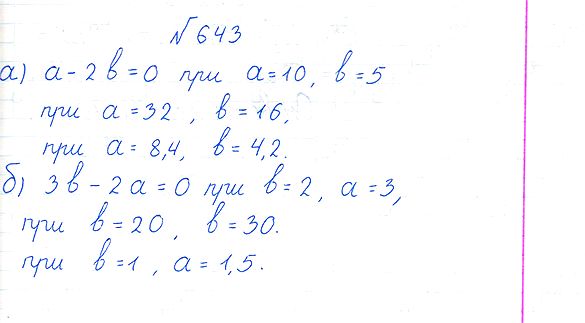 № 643
а) a - 2в = 0 при a = 10, в = 5
при a = 32, в = 16,
при a = 8,4, в = 4,2.
б) 3в - 2a = 0 при в = 2, a = 3,
при в = 20, в = 30.
при в = 1, a = 1,5.